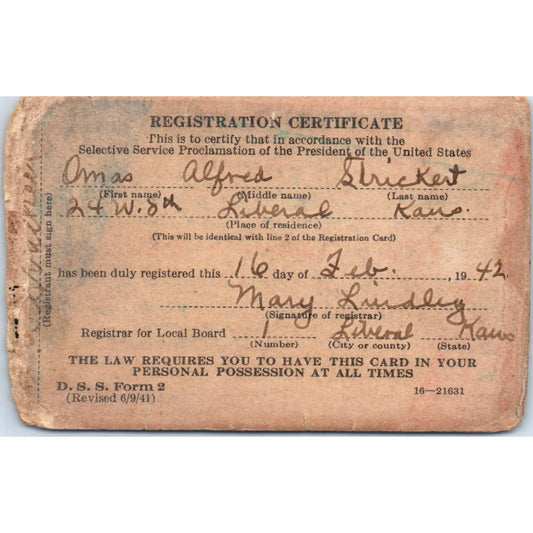 REGISTRATION CERTIFICATE
This is to certify that in accordance with the
Selective Service Proclamation of the President of the United States
Omas Alfred Strickert
(First name) (Middle name) (Last name)
24 W. 5th Liberal Kans.
(Place of residence)
(This will be identical with line 2 of the Registration Card)
has been duly registered this 16 day of Feb., 1942
Mary Lindley
(Signature of registrar)
Registrar for Local Board 1 Liberal Kans
(Number) (City or county) (State)
THE LAW REQUIRES YOU TO HAVE THIS CARD IN YOUR
PERSONAL POSSESSION AT ALL TIMES
D. S. S. Form 2
(Revised 6/9/41) 16—21631
(Registrant must sign here)